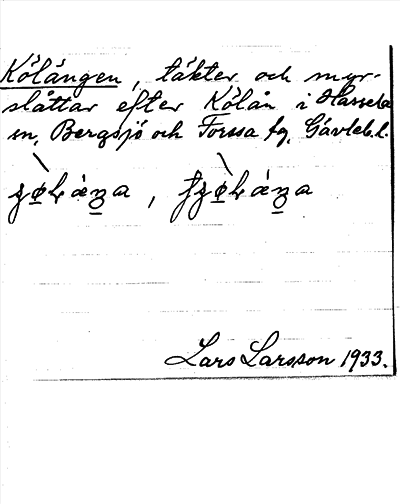 Kölängen, täkter och myr-
slåttar efter Kölån i Hassela
sn, Bergsjö och Forssa fg, Gävleb. l.
Lars Larsson 1933.